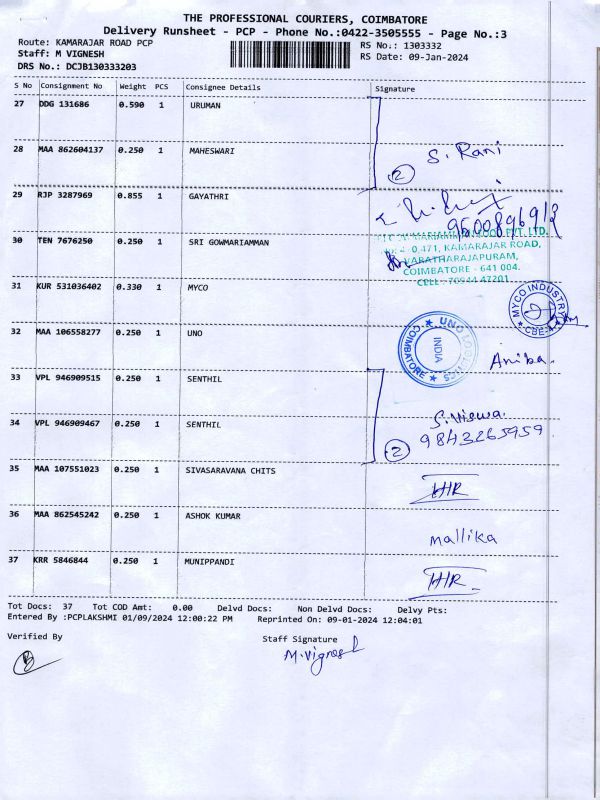 THE PROFESSIONAL COURIERS, COIMBATORE
Delivery Runsheet - PCP - Phone No.:0422-3505555 - Page No.:3
Route: KAMARAJAR ROAD PCP
Staff: M VIGNESH
DRS No.: DCJB130333203
RS No.: 1303332
RS Date: 09-Jan-2024
S No Consignment No Weight PCS Consignee Details Signature
27 DDG 131686 0.590 1 URUMAN
28 MAA 862604137 0.250 1 MAHESWARI
2 S. Rani
29 RJP 3287969 0.855 1 GAYATHRI
9600896913
30 TEN 7676250 0.250 1 SRI GOWMARIAMMAN
FOOD PVT. LTD.
0,471, KAMARAJAR ROAD,
VARATHARAJAPURAM,
COIMBATORE - 641 004.
CELL: 70944 47201
31 KUR 531036402 0.330 1 MYCO
MYCO INDUSTRY
CBE-4
32 MAA 106558277 0.250 1 UNO
UNO
INDIA
COIMBATORE
Aniba.
33 VPL 946909515 0.250 1 SENTHIL
34 VPL 946909467 0.250 1 SENTHIL
S. Viswa.
2 9843265959
35 MAA 107551023 0.250 1 SIVASARAVANA CHITS
36 MAA 862545242 0.250 1 ASHOK KUMAR
mallika
37 KRR 5846844 0.250 1 MUNIPPANDI
Tot Docs: 37 Tot COD Amt: 0.00 Delvd Docs: Non Delvd Docs: Delvy Pts:
Entered By :PCPLAKSHMI 01/09/2024 12:00:22 PM Reprinted On: 09-01-2024 12:04:01
Verified By
Staff Signature
M. Vignesh